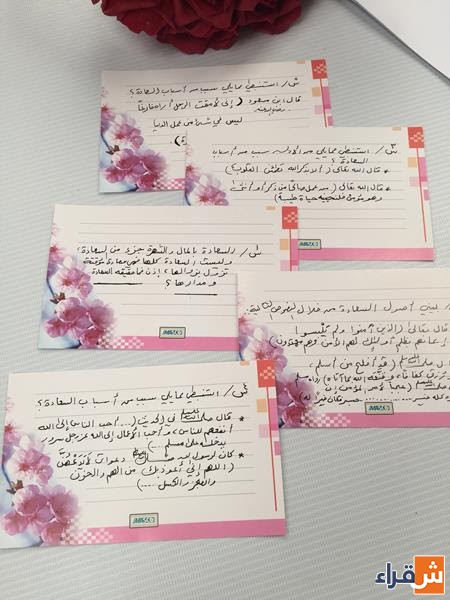 س/ استنبطي مما يلي سبب من أسباب السعادة؟
قال ابن مسعود (إني لأمقت الرجل أراه فارغاً
رضي الله عنه
ليس في شيء من عمل الدنيا
س/ استنبطي مما يلي من الأدلة سبب من أسباب
السعادة؟
* قال الله تعالى (ألا بذكر الله تطمئن القلوب)
* قال الله تعالى (من عمل صالحًا من ذكر أو أنثى
وهو مؤمن فلنحيينه حياة طيبة)
س/ السعادة بالمال والشهرة جزء من السعادة؟
وليست السعادة كلها فهي سعادة مؤقتة
تزول بزوالها؟ إذن فما حقيقة السعادة
ومدارها؟
بيني أصول السعادة من خلال النصوص التالية:
قال تعالى (الذين آمنوا ولم يلبسوا
إيمانهم بظلم أولئك لهم الأمن وهم مهتدون)
(قد أفلح من أسلم،
ورزق كفافًا، وقنعه الله بما آتاه) رواه مسلم
س/ استنبطي مما يلي سبب من أسباب السعادة؟
* قال صلى الله عليه وسلم في الحديث (... أحب الناس إلى الله
أنفعهم للناس، وأحب الأعمال إلى الله عز وجل سرور
يدخله على مسلم ...)
* كان لرسول الله صلى الله عليه وسلم دعوات لا يدعهن
(اللهم إني أعوذ بك من الهم والحزن
والعجز والكسل ....)
شقراء